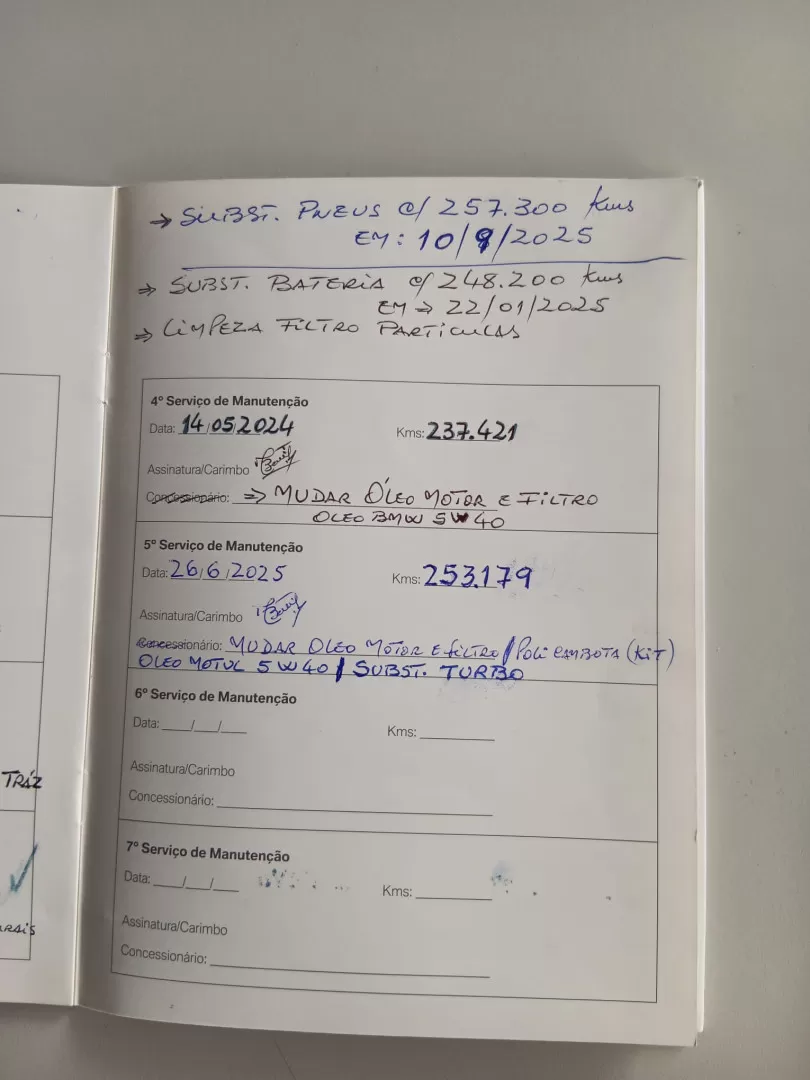 → SUBST. PNEUS c/ 257.300 Kms
EM: 10/9/2025
⇒ SUBST. BATERIA c/ 248.200 Kms
EM → 22/01/2025
⇒ LIMPEZA FILTRO PARTÍCULAS
4º Serviço de Manutenção
Data: 14/05/2024 Kms: 237.421
Assinatura/Carimbo
Concessionário: ⇒ MUDAR ÓLEO MOTOR E FILTRO
OLEO BMW 5W40
5º Serviço de Manutenção
Data: 26/6/2025 Kms: 253.179
Assinatura/Carimbo
Concessionário: MUDAR OLEO MOTOR E FILTRO / POLI CAMBOTA (KIT)
OLEO MOTUL 5W40 / SUBST. TURBO
6º Serviço de Manutenção
Data: ___/___/___ Kms: ________
Assinatura/Carimbo
Concessionário: ________
7º Serviço de Manutenção
Data: ___/___/___ Kms: ________
Assinatura/Carimbo
Concessionário: ________
TRÁZ